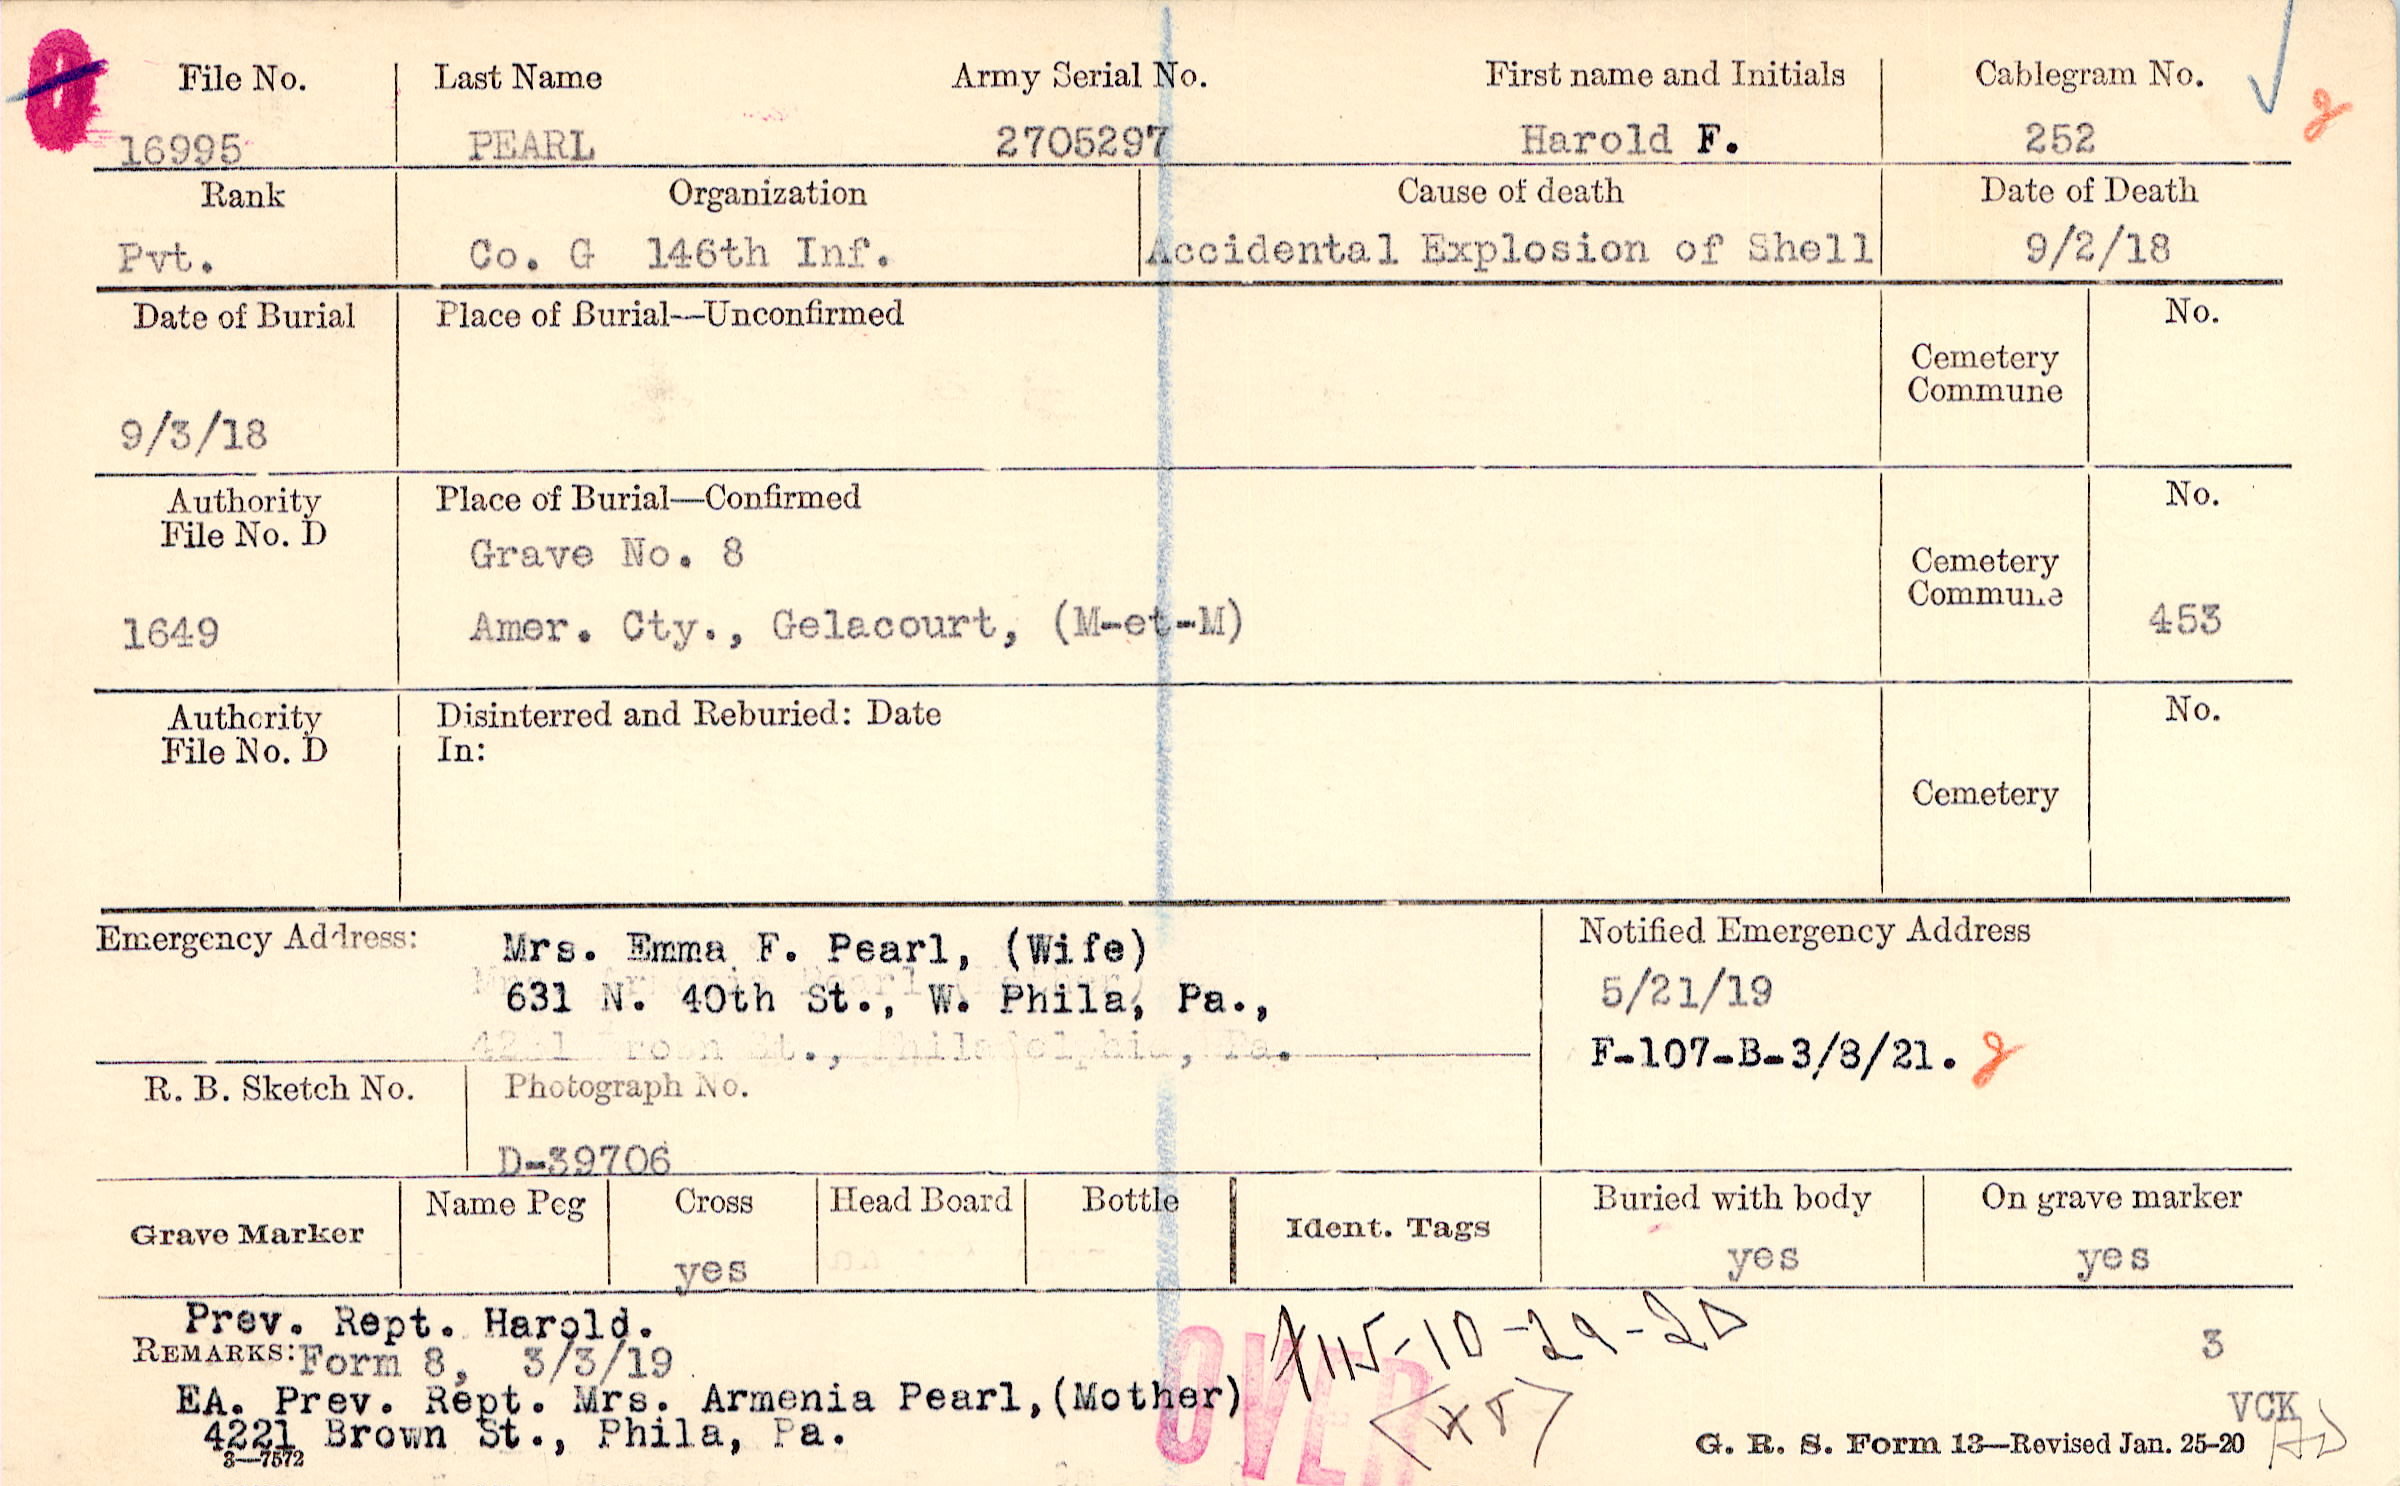 File No. Last Name Army Serial No. First name and Initials Cablegram No.
16995 PEARL 2705297 Harold F. 252
Rank Organization Cause of death Date of Death
Pvt. Co. G 146th Inf. Accidental Explosion of Shell 9/2/18
Date of Burial Place of Burial—Unconfirmed No.
Cemetery
Commune
9/3/18
Authority Place of Burial—Confirmed No.
File No. D
Grave No. 8
Cemetery
Commune
1649 Amer. Cty., Gelacourt, (M-et-M) 453
Authority Disinterred and Reburied: Date No.
File No. D In:
Cemetery
Emergency Address: Mrs. Emma F. Pearl, (Wife) Notified Emergency Address
631 N. 40th St., W. Phila, Pa., 5/21/19
F-107-B-3/8/21.
R. B. Sketch No. Photograph No.
D-39706
Grave Marker Name Peg Cross Head Board Bottle Ident. Tags Buried with body On grave marker
yes yes yes
Prev. Rept. Harold.
REMARKS: Form 8, 3/3/19 3
EA. Prev. Rept. Mrs. Armenia Pearl, (Mother) VCK
4221 Brown St., Phila, Pa.
OVER
3—7572 G. R. S. Form 13—Revised Jan. 25-20